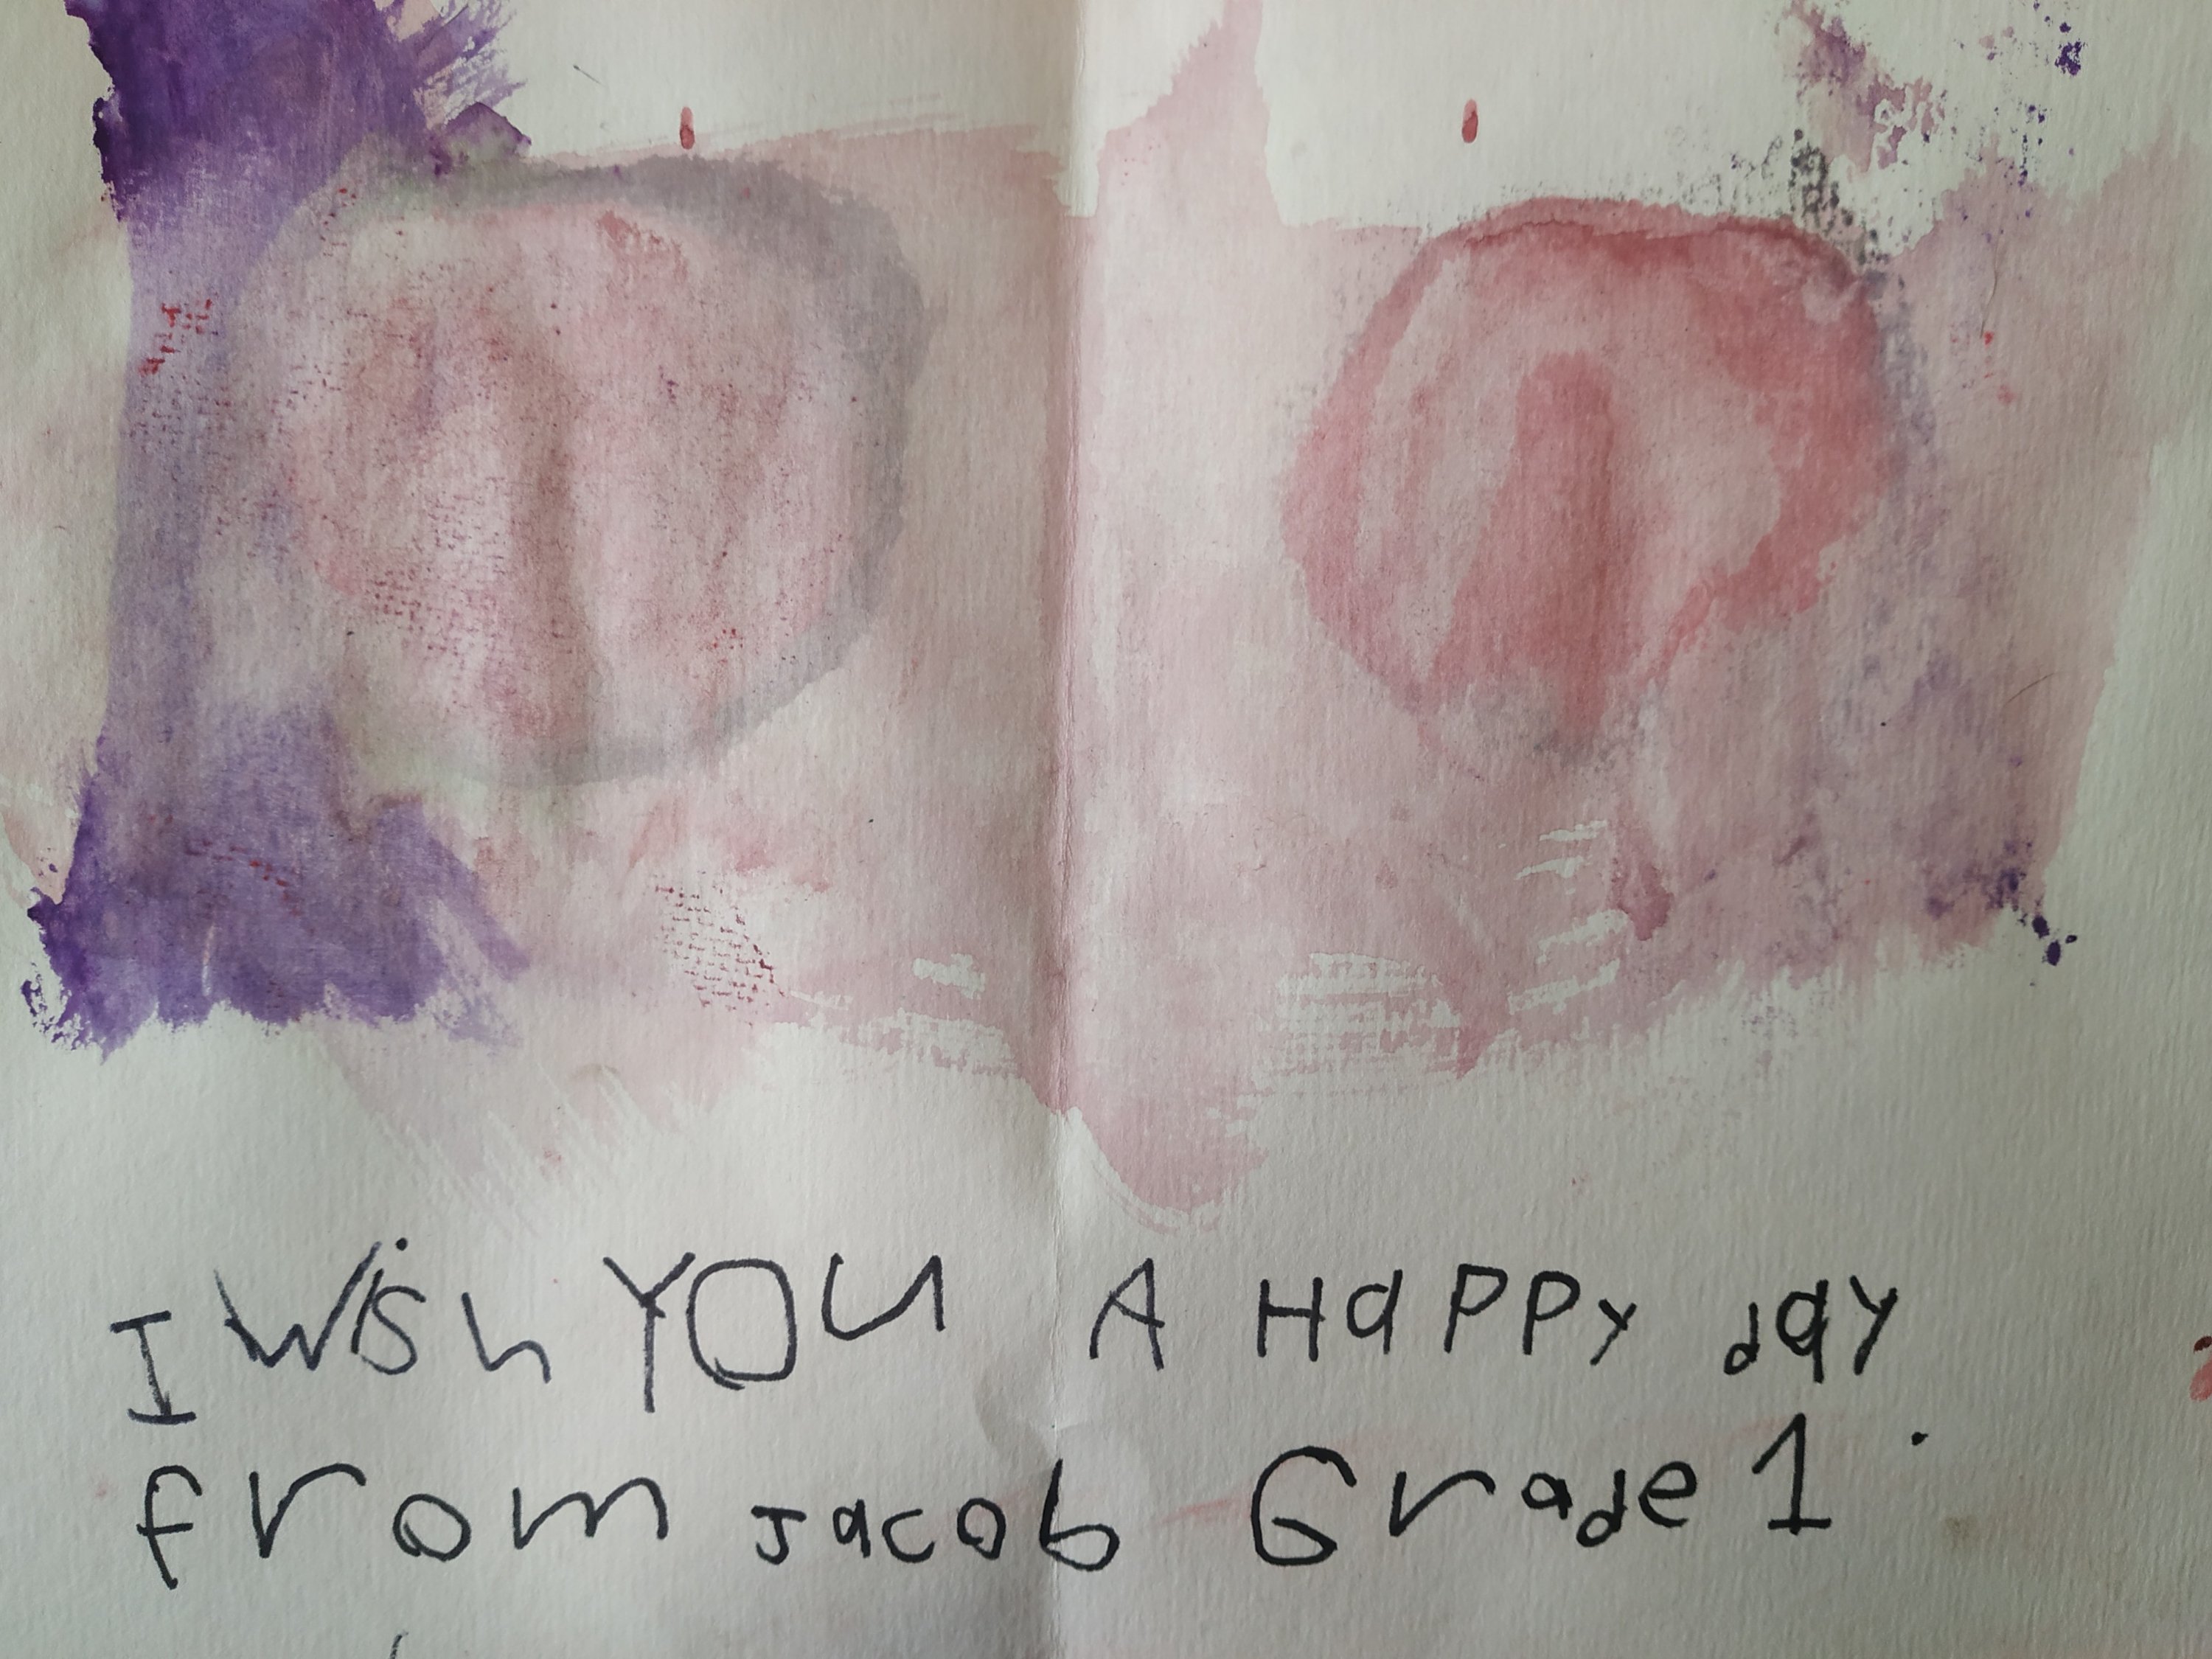 I Wish YOU A HaPPy day
from Jacob Grade 1.